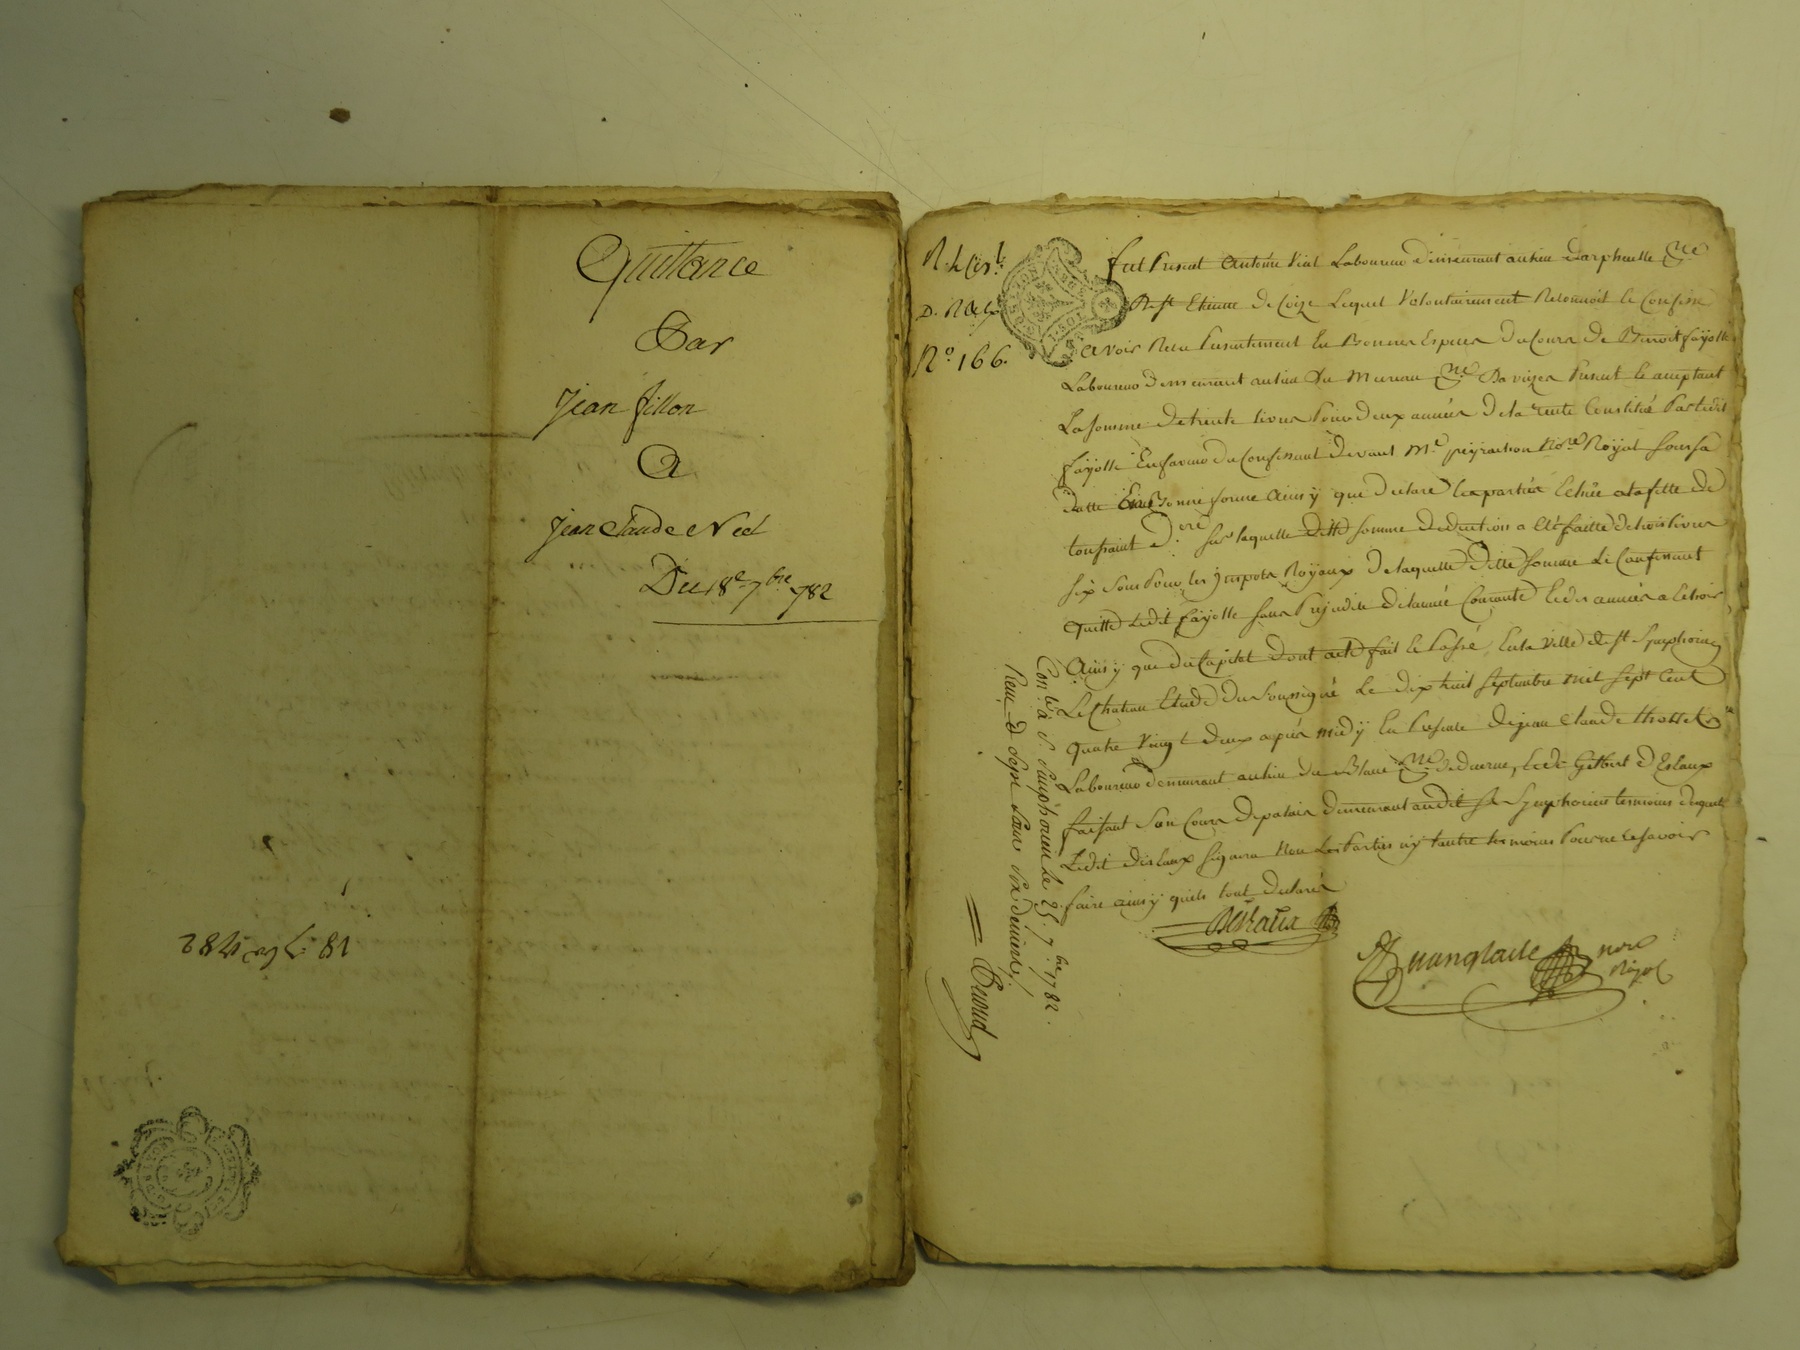 Quittance
Par
Jean fillon
A
Jean Claude Néel
Du 18e 7bre 782
18. 7bre 1782
N.º 166.
fut Present Antoine Vial Laboureur demeurant au lieu
De St Etienne de Coize Lequel Volontairement Reconnoit et Confesse
avoir Recu Presentement En Bonnes Especes du Cours de Benoit fayolle
Laboureur demeurant au lieu du Mureau Present et acceptant
La somme de trente livres Pour deux années de la rente Constitué Par ledit
fayolle En faveur du Confessant devant Me peyrachon Nore Royal sous sa
datte Et en Bonne forme ainsy que declaré les parties Echüe a la fette de
toussaint dre sur laquelle ditte somme deduction a eté faitte de trois livres
six sous Pour les jmpots Royaux de laquelle ditte somme Le Confessant
quitte Ledit fayolle sans Prejudice de lannée Courante et des années a Echoir
Ainsy que du Capital dont acte fait et Passé En la Ville de St Symphorien
Le Chateau Etude du soussigné Le dix huit septembre mil sept Cent
quatre Vingt deux après midy En Presence de jean Claude
Laboureur demeurant au lieu du Blanc et de Gilbert Deslaux
faisant son Cours de palais demeurant audit St Symphorien temoins
Ledit deslaux signera Non Les Parties ny lautre temoins Pour ne le savoir
faire ainsy quils lont declaré
Deslaux
nore
Royal
Conlé à S. Simphorien le 25. 7.bre 1782.
Reçu sept sous six deniers